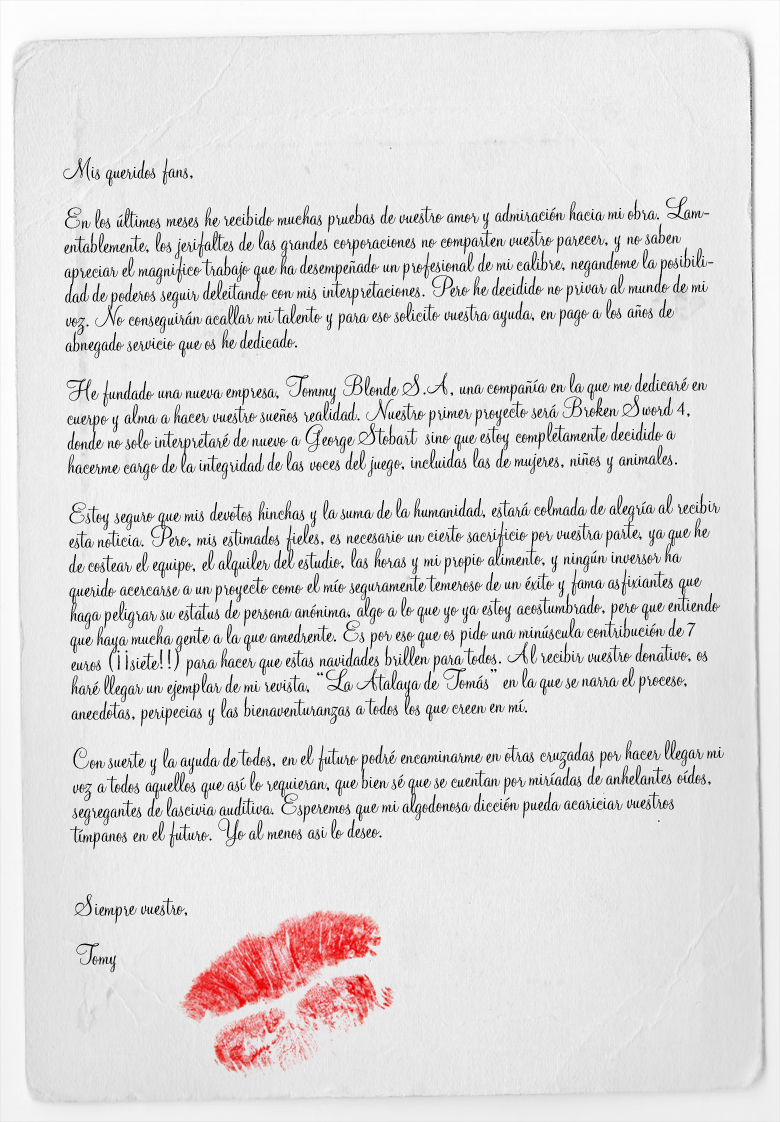 Mis queridos fans,
En los últimos meses he recibido muchas pruebas de vuestro amor y admiración hacia mi obra. Lam-
entablemente, los jerifaltes de las grandes corporaciones no comparten vuestro parecer, y no saben
apreciar el magnifico trabajo que ha desempeñado un profesional de mi calibre, negandome la posibili-
dad de poderos seguir deleitando con mis interpretaciones. Pero he decidido no privar al mundo de mi
voz. No conseguirán acallar mi talento y para eso solicito vuestra ayuda, en pago a los años de
abnegado servicio que os he dedicado.
He fundado una nueva empresa, Tommy Blonde S.A, una compañía en la que me dedicaré en
cuerpo y alma a hacer vuestro sueños realidad. Nuestro primer proyecto será Broken Sword 4,
donde no solo interpretaré de nuevo a George Stobart sino que estoy completamente decidido a
hacerme cargo de la integridad de las voces del juego, incluidas las de mujeres, niños y animales.
Estoy seguro que mis devotos hinchas y la suma de la humanidad, estará colmada de alegría al recibir
esta noticia. Pero, mis estimados fieles, es necesario un cierto sacrificio por vuestra parte, ya que he
de costear el equipo, el alquiler del estudio, las horas y mi propio alimento, y ningún inversor ha
querido acercarse a un proyecto como el mío seguramente temeroso de un éxito y fama asfixiantes que
haga peligrar su estatus de persona anónima, algo a lo que yo ya estoy acostumbrado, pero que entiendo
que haya mucha gente a la que amedrente. Es por eso que os pido una minúscula contribución de 7
euros (¡¡siete!!) para hacer que estas navidades brillen para todos. Al recibir vuestro donativo, os
haré llegar un ejemplar de mi revista, “La Atalaya de Tomás” en la que se narra el proceso,
anecdotas, peripecias y las bienaventuranzas a todos los que creen en mí.
Con suerte y la ayuda de todos, en el futuro podré encaminarme en otras cruzadas por hacer llegar mi
voz a todos aquellos que así lo requieran, que bien sé que se cuentan por miríadas de anhelantes oídos,
segregantes de lascivia auditiva. Esperemos que mi algodonosa dicción pueda acariciar vuestros
tímpanos en el futuro. Yo al menos asi lo deseo.
Siempre vuestro,
Tomy